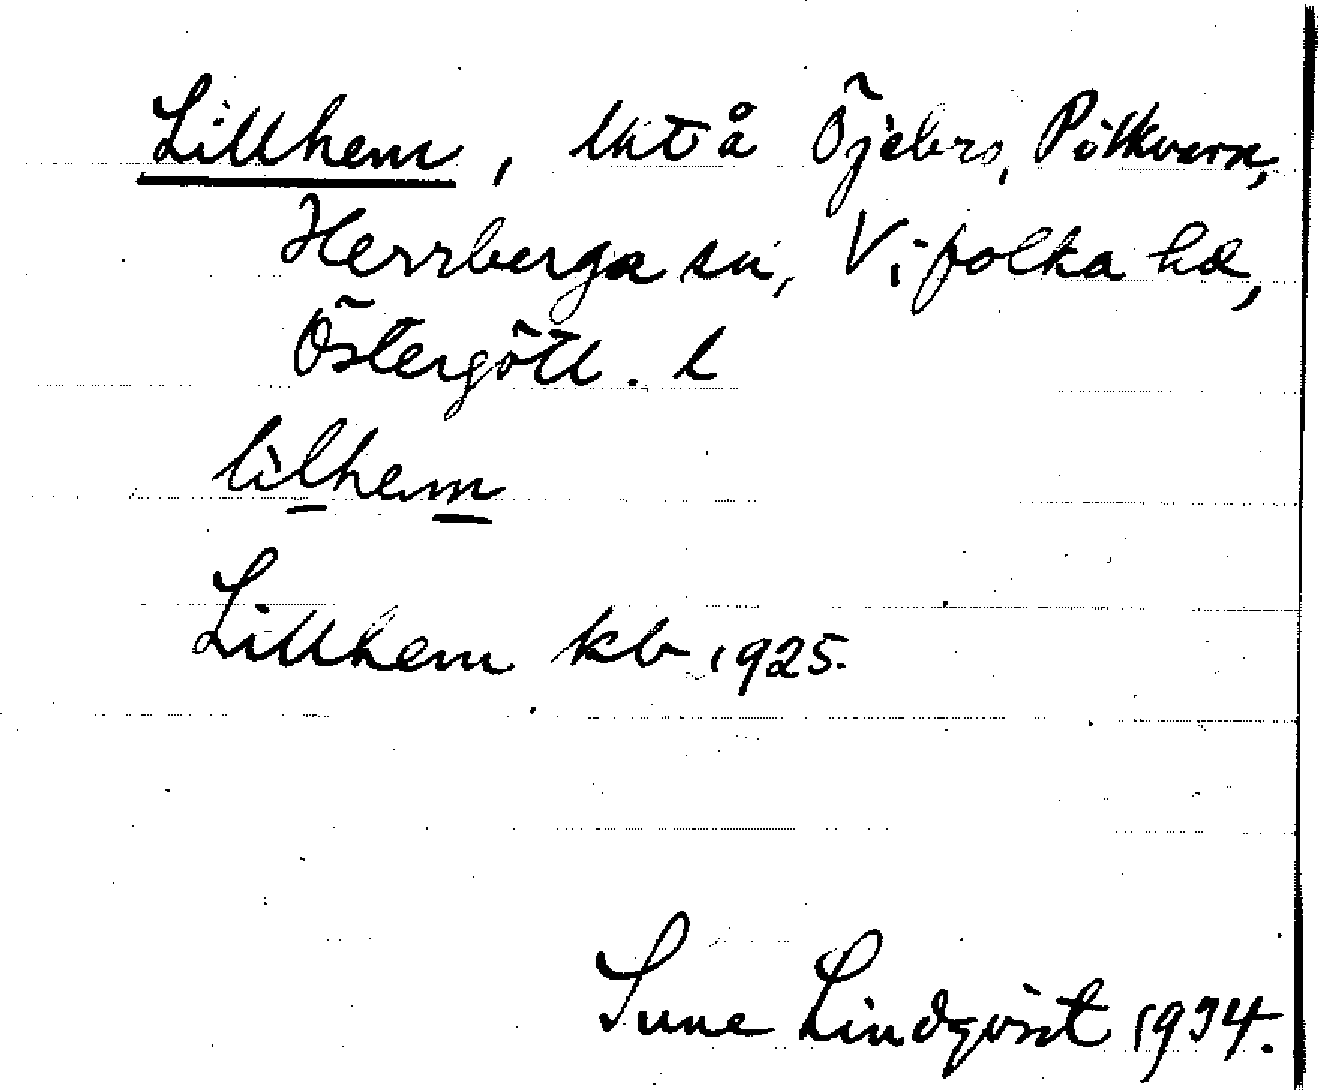 Lillhem, lht å Öjebro, Pölkvarn,
Herrberga sn, Vifolka hd,
Östergötl. l
lilhem
Lillhem kb 1925.
Sune Lindqvist 1934.